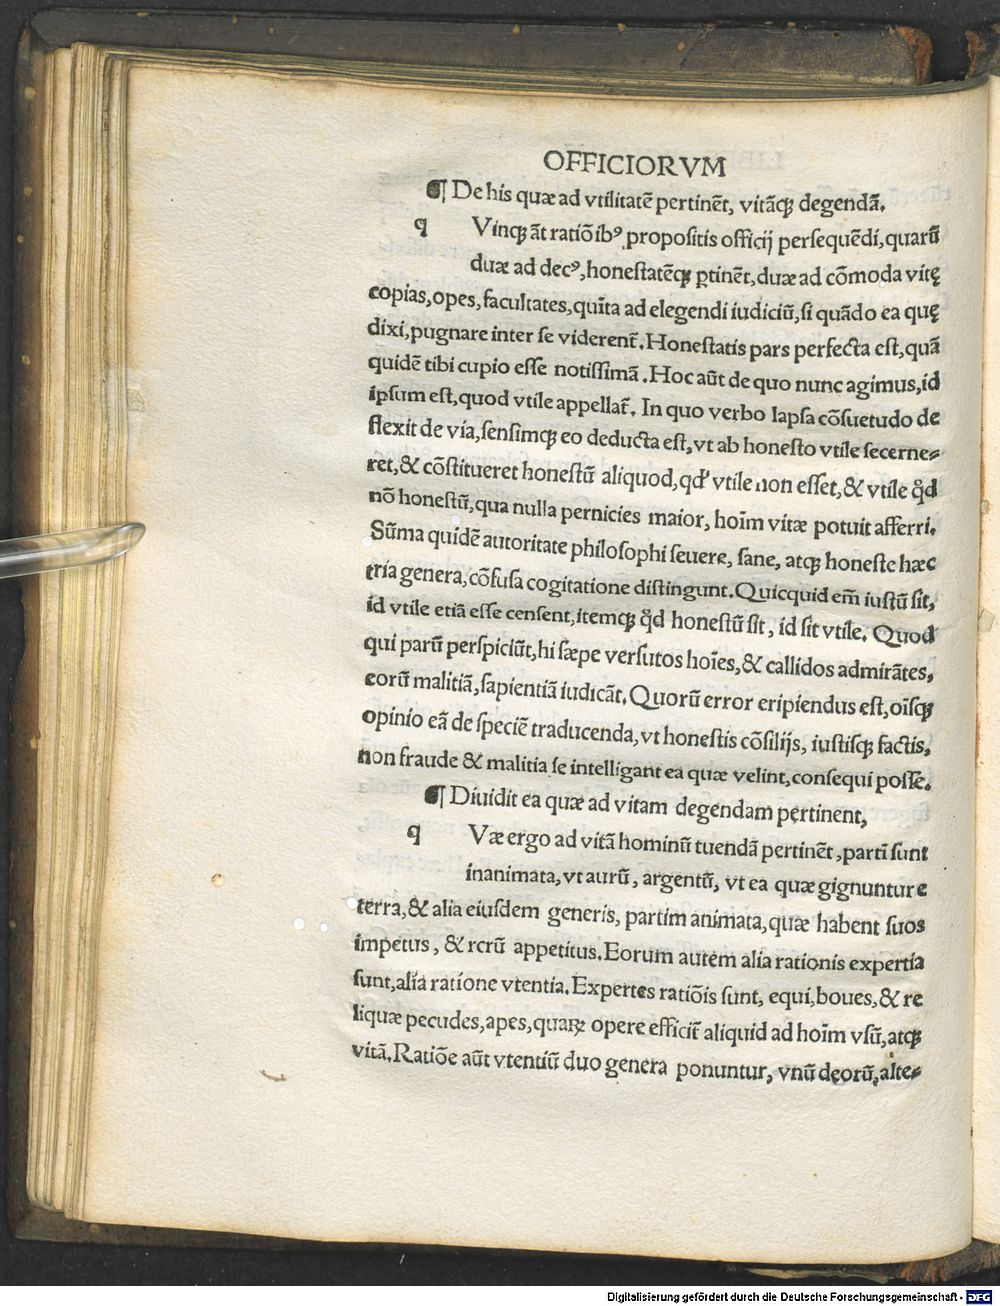 OFFICIORVM
¶ De his quæ ad vtilitatē pertinēt, vitāq̢ degendā.
q Vinq̢ āt ratiōibꝰ propositis officij persequēdi, quarū
duæ ad decꝰ, honestatēq̢ ꝑtinēt, duæ ad cōmoda vitę
copias, opes, facultates, quīta ad elegendi iudiciū, si quādo ea quę
dixi, pugnare inter se viderent̃. Honestatis pars perfecta est, quā
quidē tibi cupio esse notissimā. Hoc aūt de quo nunc agimus, id
ipsum est, quod vtile appellat̃. In quo verbo lapsa cōsuetudo de
flexit de via, sensimq̢ eo deducta est, vt ab honesto vtile secerne⸗
ret, & cōstitueret honestū aliquod, qđ vtile non esset, & vtile qͦd
nō honestū, qua nulla pernicies maior, hoīm vitæ potuit afferri.
Sūma quidē autoritate philosophi seuere, sane, atq̢ honeste hæc
tria genera, cōfusa cogitatione distingunt. Quicquid em̄ iustū sit,
id vtile etiā esse censent, itemq̢ qͦd honestū sit, id sit vtile. Quod
qui parū perspiciūt, hi sæpe versutos hoīes, & callidos admirātes,
eorū malitiā, sapientiā iudicāt. Quorū error eripiendus est, oīsq̢
opinio eā de speciē traducenda, vt honestis cōsilijs, iustisq̢ factis,
non fraude & malitia se intelligant ea quæ velint, consequi posse.
¶ Diuidit ea quæ ad vitam degendam pertinent,
q Væ ergo ad vitā hominū tuendā pertinēt, partī sunt
inanimata, vt aurū, argentū, vt ea quæ gignuntur e
terra, & alia eiusdem generis, partim animata, quæ habent suos
impetus, & rerū appetitus. Eorum autem alia rationis expertia
sunt, alia ratione vtentia. Expertes ratiōis sunt, equi, boues, & re
liquæ pecudes, apes, quaꝝ opere efficit̃ aliquid ad hoīm vsū, atq̢
vitā. Ratiōe aūt vtentiū duo genera ponuntur, vnū deorū, alte⸗
Digitalisierung gefördert durch die Deutsche Forschungsgemeinschaft - DFG